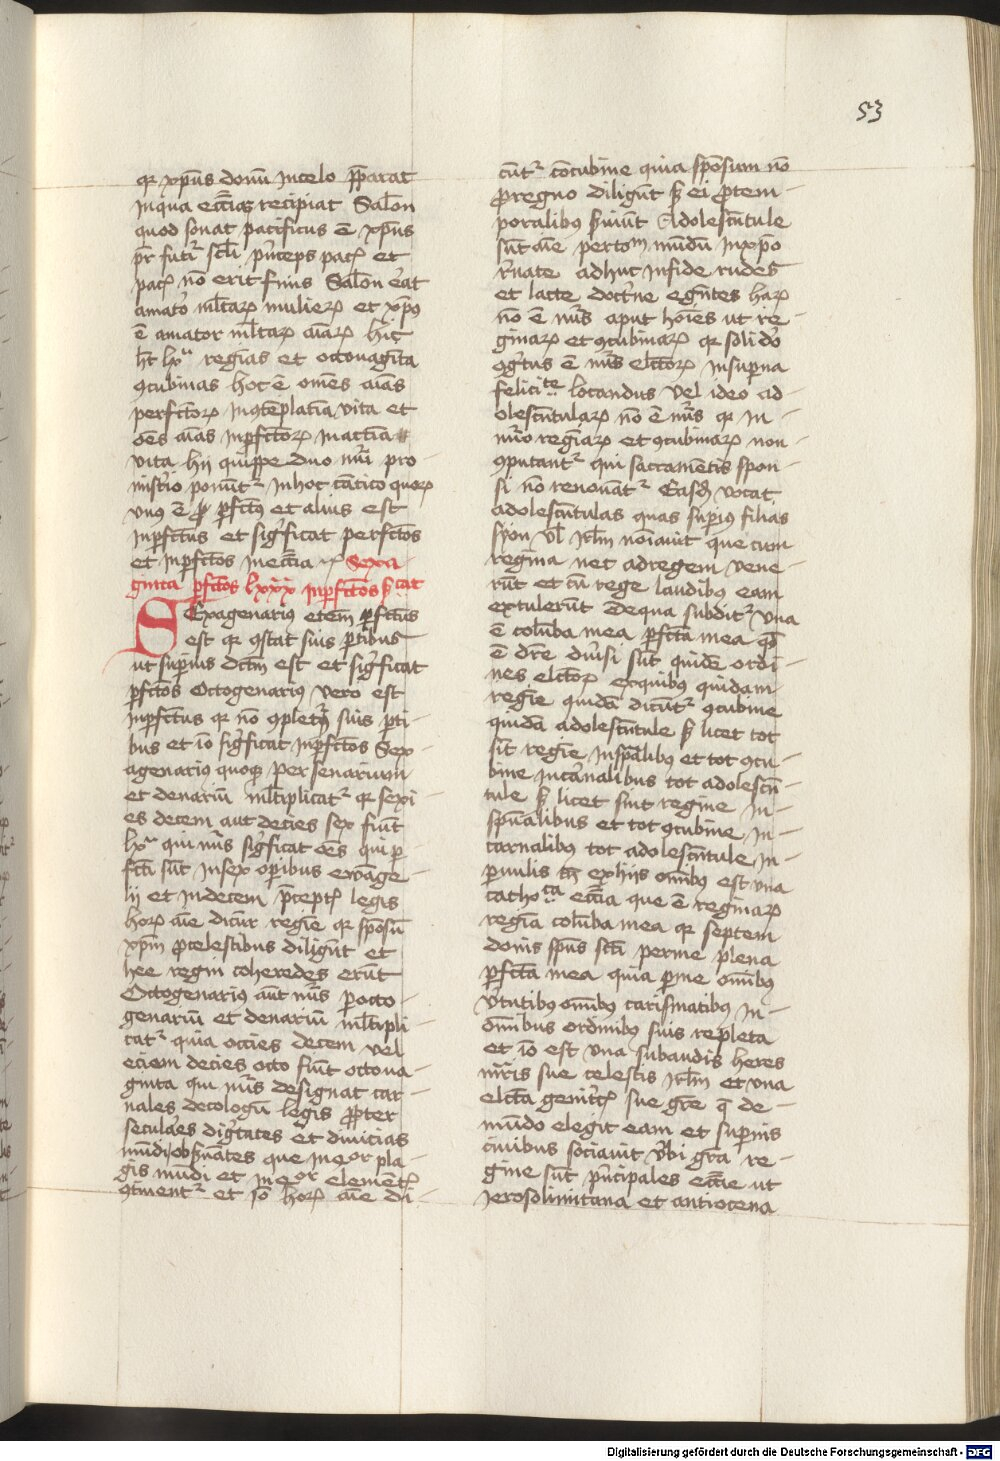 53
qr xp̄us domū in celo p̄parat
in qua ecc̄ias recipiat Salon
quod sonat pacificus ē xp̄us
pr̄ futr̄i sc̄li p̄nceps pac̄ et
pac̄ nō erit finis Salon erat
amator ml̄taꝝ mulieꝝ et xp̄us
ē amator ml̄taꝝ aīaꝝ hic
ht̄ lxᵃ reginas et octouaginta
ꝯcubinas hoc ē om̄es aīas
perfectoꝝ in ꝯtēplatīa vita et
oēs aīas inꝑfectoꝝ in actīa
vita hij quippe duo nūi pro
misterio ponūtʳ in hoc cātico quoꝝ
vnus ē ꝑfectus et alius est
inꝑfectus et significat perfectos
et inꝑfectos in ecc̄ia Sexa
ginta ꝑfectos lxxx inꝑfectos sᵗcat
SExagenarius etem̄ ꝑfectus
est qr ꝯstat suis ꝑtibus
ut suꝑius dictm̄ est et significat
ꝑfectos Octogenarius vero est
inꝑfectus qr nō ꝯpletʳ suis ꝑti
bus et iō significat inꝑfectos Sex
agenarius quoqꝫ per senarium
et denariū ml̄tiplicatʳ qr sexi
es decem aut decies sex fiūt
lxᵃ qui nūs significat oēs qui ꝑ
fcti sūt in sex oꝑibus ewāge
lij et in decem p̄ceptꝭ legis
hoꝝ aīe dicūtur regīe qr sponsū
xp̄m ꝓ celestibus diligūt et
hee regni coheredes erūt
Octogenarius aūt nūs ꝑ octo
genariū et denariū ml̄tipli
catʳ quia occies decem vel
eciem decies octo fiūt octoua
ginta qui nūs designat car
nales decologū legis propter
seculares dignitates et diuicias
mūdi obseruātes que in eor pla
gis mūdi et in eor elementꝭ
ꝯtinentʳ et iō hoꝝ aīe di
cūtʳ cōcubine quia sponsum nō
ꝓ regno diligūt sꝫ ei ꝓ tem
poralibus seruiūt Adolescētule
sūt aīe per totm̄ mūdū in xp̄o
renate adhuc in fide rudes
et lacte doctrine egentes haꝝ
nō ē nūs aput hoīes ut re
ginaꝝ et ꝯcubinaꝝ qr soli deo
ꝯgnitus ē nūs electoꝝ in suꝑna
felicite locandus vel ideo ad
olescentulaꝝ nō ē nūs qr in
nūero reginaꝝ et ꝯcubinaꝝ non
ꝯputantʳ qui sacramētis spon
si nō renouātʳ Easdē vocat
adolescentulas quas suꝑius filias
syon vl̄ irlm̄ noīauit que cum
regina nec ad regem vene
rūt et cū rege laudibus eam
extulerūt De qua subditʳ Vna
ē colūba mea ꝑfecta mea qd̄
ē dr̄e diuersi sūt quidē ordi
nes electoꝝ ex quibus quidam
regīe quidā dicūtʳ ꝯcubine
quidā adolescentule sꝫ licet tot
sīt regīe in spūalibus et tot ꝯcu
bine in carnalibus tot adolescē
tule sꝫ licet sint regine in
spūalibus et tot ꝯcubine in
carnalibus tot adolescentule in
paruulis tn̄ ex hijs omībus est vna
cathoᶜᵃ ecc̄ia que ē reginaꝝ
regīa colūba mea qr septem
donis spūs sc̄i per me plena
ꝑfecta mea quia ꝑ me omībus
virtutibus omībus carismatibus in
om̄ibus ordinibus suis repleta
et iō est vna subaudis heres
mr̄is sue celestis irlm̄ et vna
electa genitrꝭ sue gr̄e q̄ de
mūdo elegit eam et suꝑnis
ciuibus sociauit Vbi gr̄a re
gine sūt p̄ncipales ecc̄ie ut
ierosolimitana et antiocena
Digitalisierung gefördert durch die Deutsche Forschungsgemeinschaft - DFG